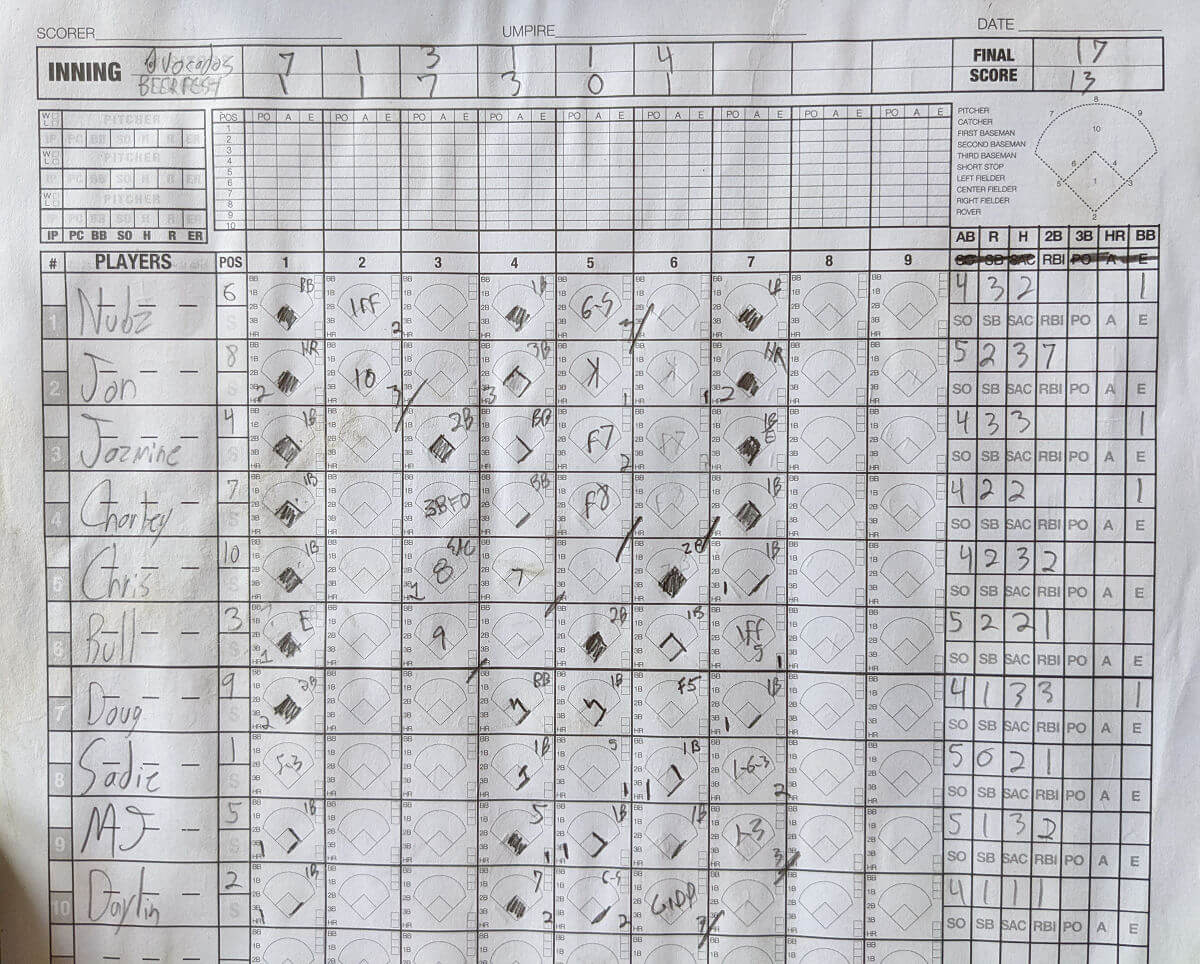 SCORER UMPIRE DATE
INNING Avocados 7 1 3 1 1 4 FINAL SCORE 17
BEERFEST 1 1 7 3 0 1 13
PITCHER
IP PC BB SO H R ER
PITCHER
IP PC BB SO H R ER
PITCHER
IP PC BB SO H R ER
POS PO A E PO A E PO A E PO A E PO A E PO A E PO A E PO A E PO A E
1
2
3
4
5
6
7
8
9
10
PITCHER
CATCHER
FIRST BASEMAN
SECOND BASEMAN
THIRD BASEMAN
SHORT STOP
LEFT FIELDER
CENTER FIELDER
RIGHT FIELDER
ROVER
8
7 9
10
6 4
5 1 3
2
AB R H 2B 3B HR BB
# PLAYERS POS 1 2 3 4 5 6 7 8 9 RBI
1 Nubz 6 BB 1FF 2 1B 6-5 1B 4 3 2 1
SO SB SAC RBI PO A E
2 Jon 8 HR 2 10 3 3B 3 K K 1 HR 2 5 2 3 7
SO SB SAC RBI PO A E
3 Jazmine 4 1B 2B BB F7 2 F7 1B E 4 3 3 1
SO SB SAC RBI PO A E
4 7 1B BB F8 1B 4 2 2 1
SO SB SAC RBI PO A E
5 Chris 10 1B SAC 8 1 7 2B 1B 1 4 2 3 2
SO SB SAC RBI PO A E
6 Bull 3 E 1 9 2B 1B 1FF 1 5 2 2 1
SO SB SAC RBI PO A E
7 Doug 9 2B 2 BB 1B F5 1B 1 4 1 3 3 1
SO SB SAC RBI PO A E
8 Sadie 1 5-3 1B 5 1 1B 1 1-6-3 2 5 0 2 1
SO SB SAC RBI PO A E
9 MJ 5 1B 1 5 1 1B 1 1B 1-3 3 5 1 3 2
SO SB SAC RBI PO A E
10 Daylin 2 1B 1 7 2 6-5 2 GIDP 4 1 1 1
SO SB SAC RBI PO A E